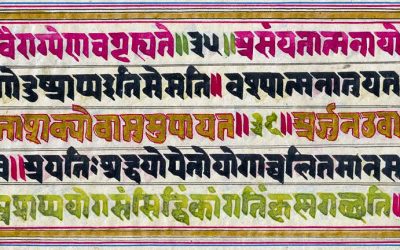 वैराग्येणचगृह्यते॥३५॥असंयतात्मनायो
गोदुष्प्रापइतिमेमति॥वश्यात्मनातुयत
ताशक्योवाप्तुमुपायत॥३६॥अर्जुनउवा
च॥अयतिःश्रद्धयोपेतोयोगाच्चलितमानस
अप्राप्ययोगसंसिद्धिंकांगतिंकृष्णगच्छति